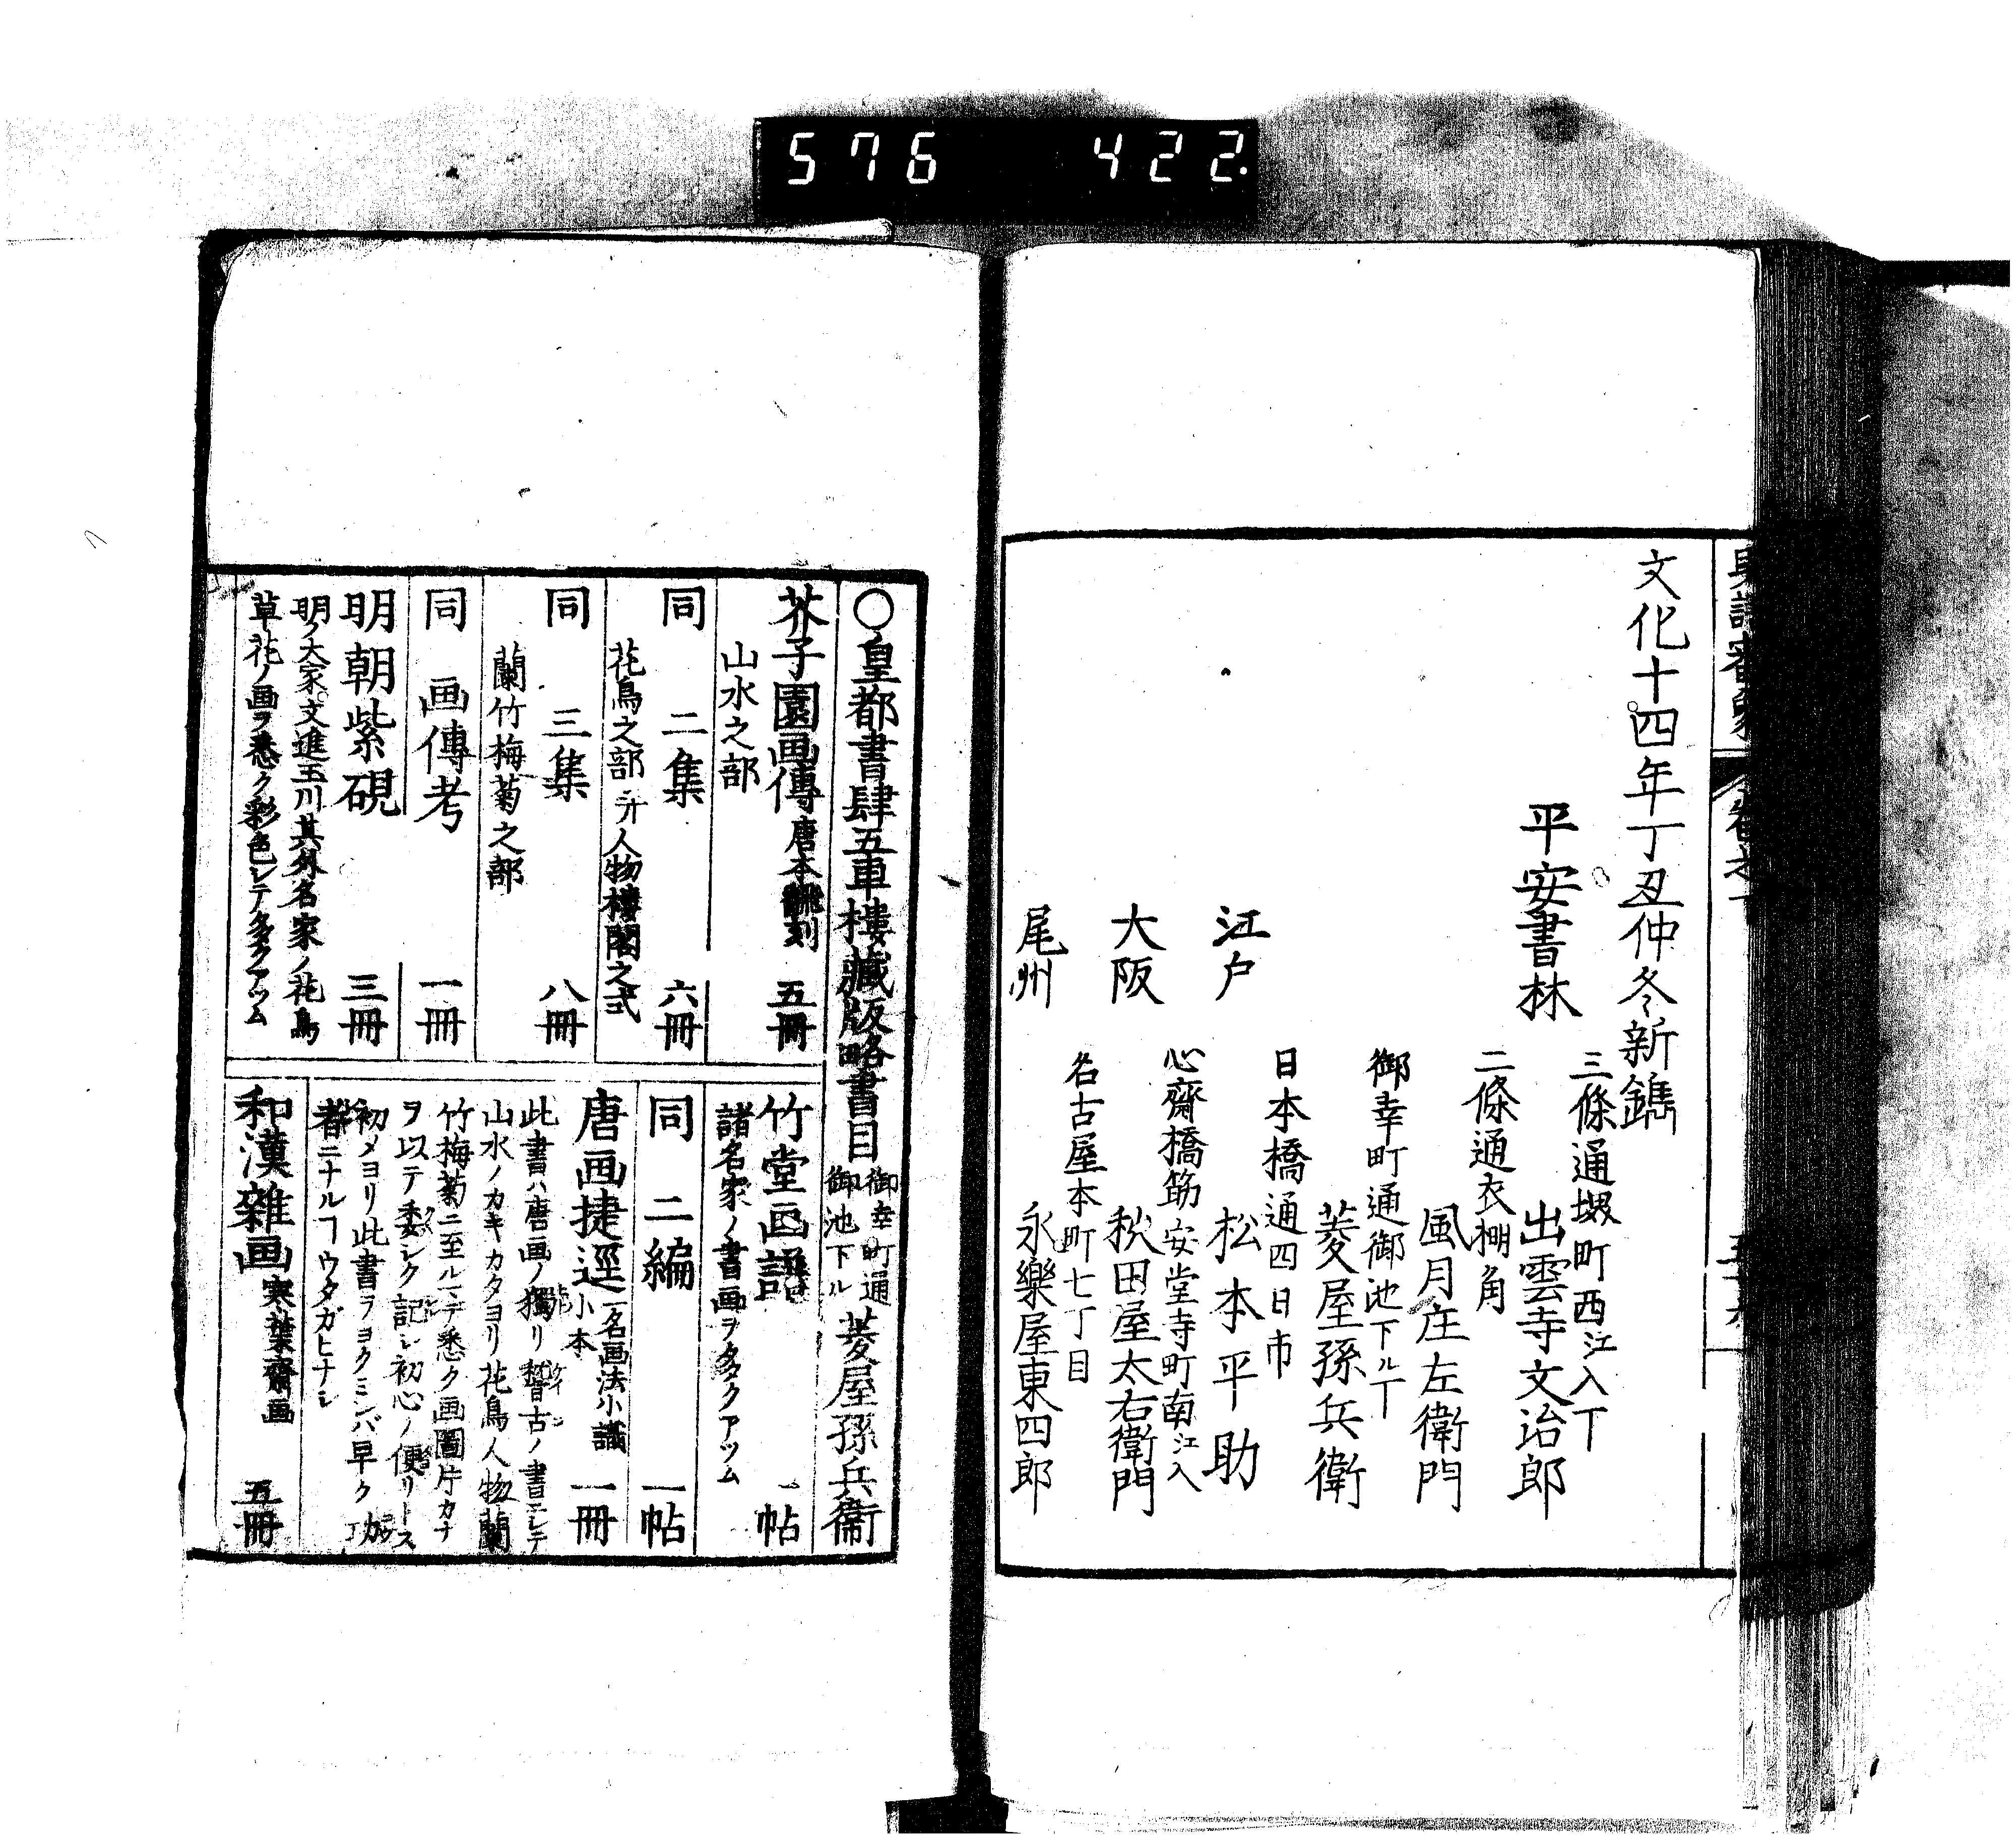 576 422.
文化十四年丁丑仲冬新鐫
平安書林
三條通堺町西江入丁
出雲寺文治郎
二條通衣棚角
風月庄左衛門
御幸町通御池下ル丁
菱屋孫兵衛
江戸
日本橋通四日市
松本平助
大阪
心齋橋筋安堂寺町南江入
秋田屋太右衛門
尾州
名古屋本町七丁目
永樂屋東四郎
○皇都書肆五車樓藏版略書目
御幸町通
御池下ル
菱屋孫兵衛
芥子園画傳 唐本翻刻 五冊
山水之部
同 二集 六冊
花鳥之部 并人物樓閣之式
同 三集 八冊
蘭竹梅菊之部
同 画傳考 一冊
明朝紫硯 三冊
明ノ大家文進玉川其外名家ノ花鳥
草花ノ画ヲ悉ク彩色シテタククアツム
竹堂画譜 一帖
諸名家ノ書画ヲタククアツム
同 二編 一帖
唐画捷逕 一名画法小識 小本 一冊
此書ハ唐画ノ獨リ稽古ノ書ニシテ
山水ノカキカタヨリ花鳥人物蘭
竹梅菊ニ至ルマデ悉ク画圖片カナ
ヲ以テ委シク記シ初心ノ便リトス
初メヨリ此書ヲヨクミンバ早ク
者ニナルヿウタガヒナシ
和漢雜画 寒葉齋画 五冊